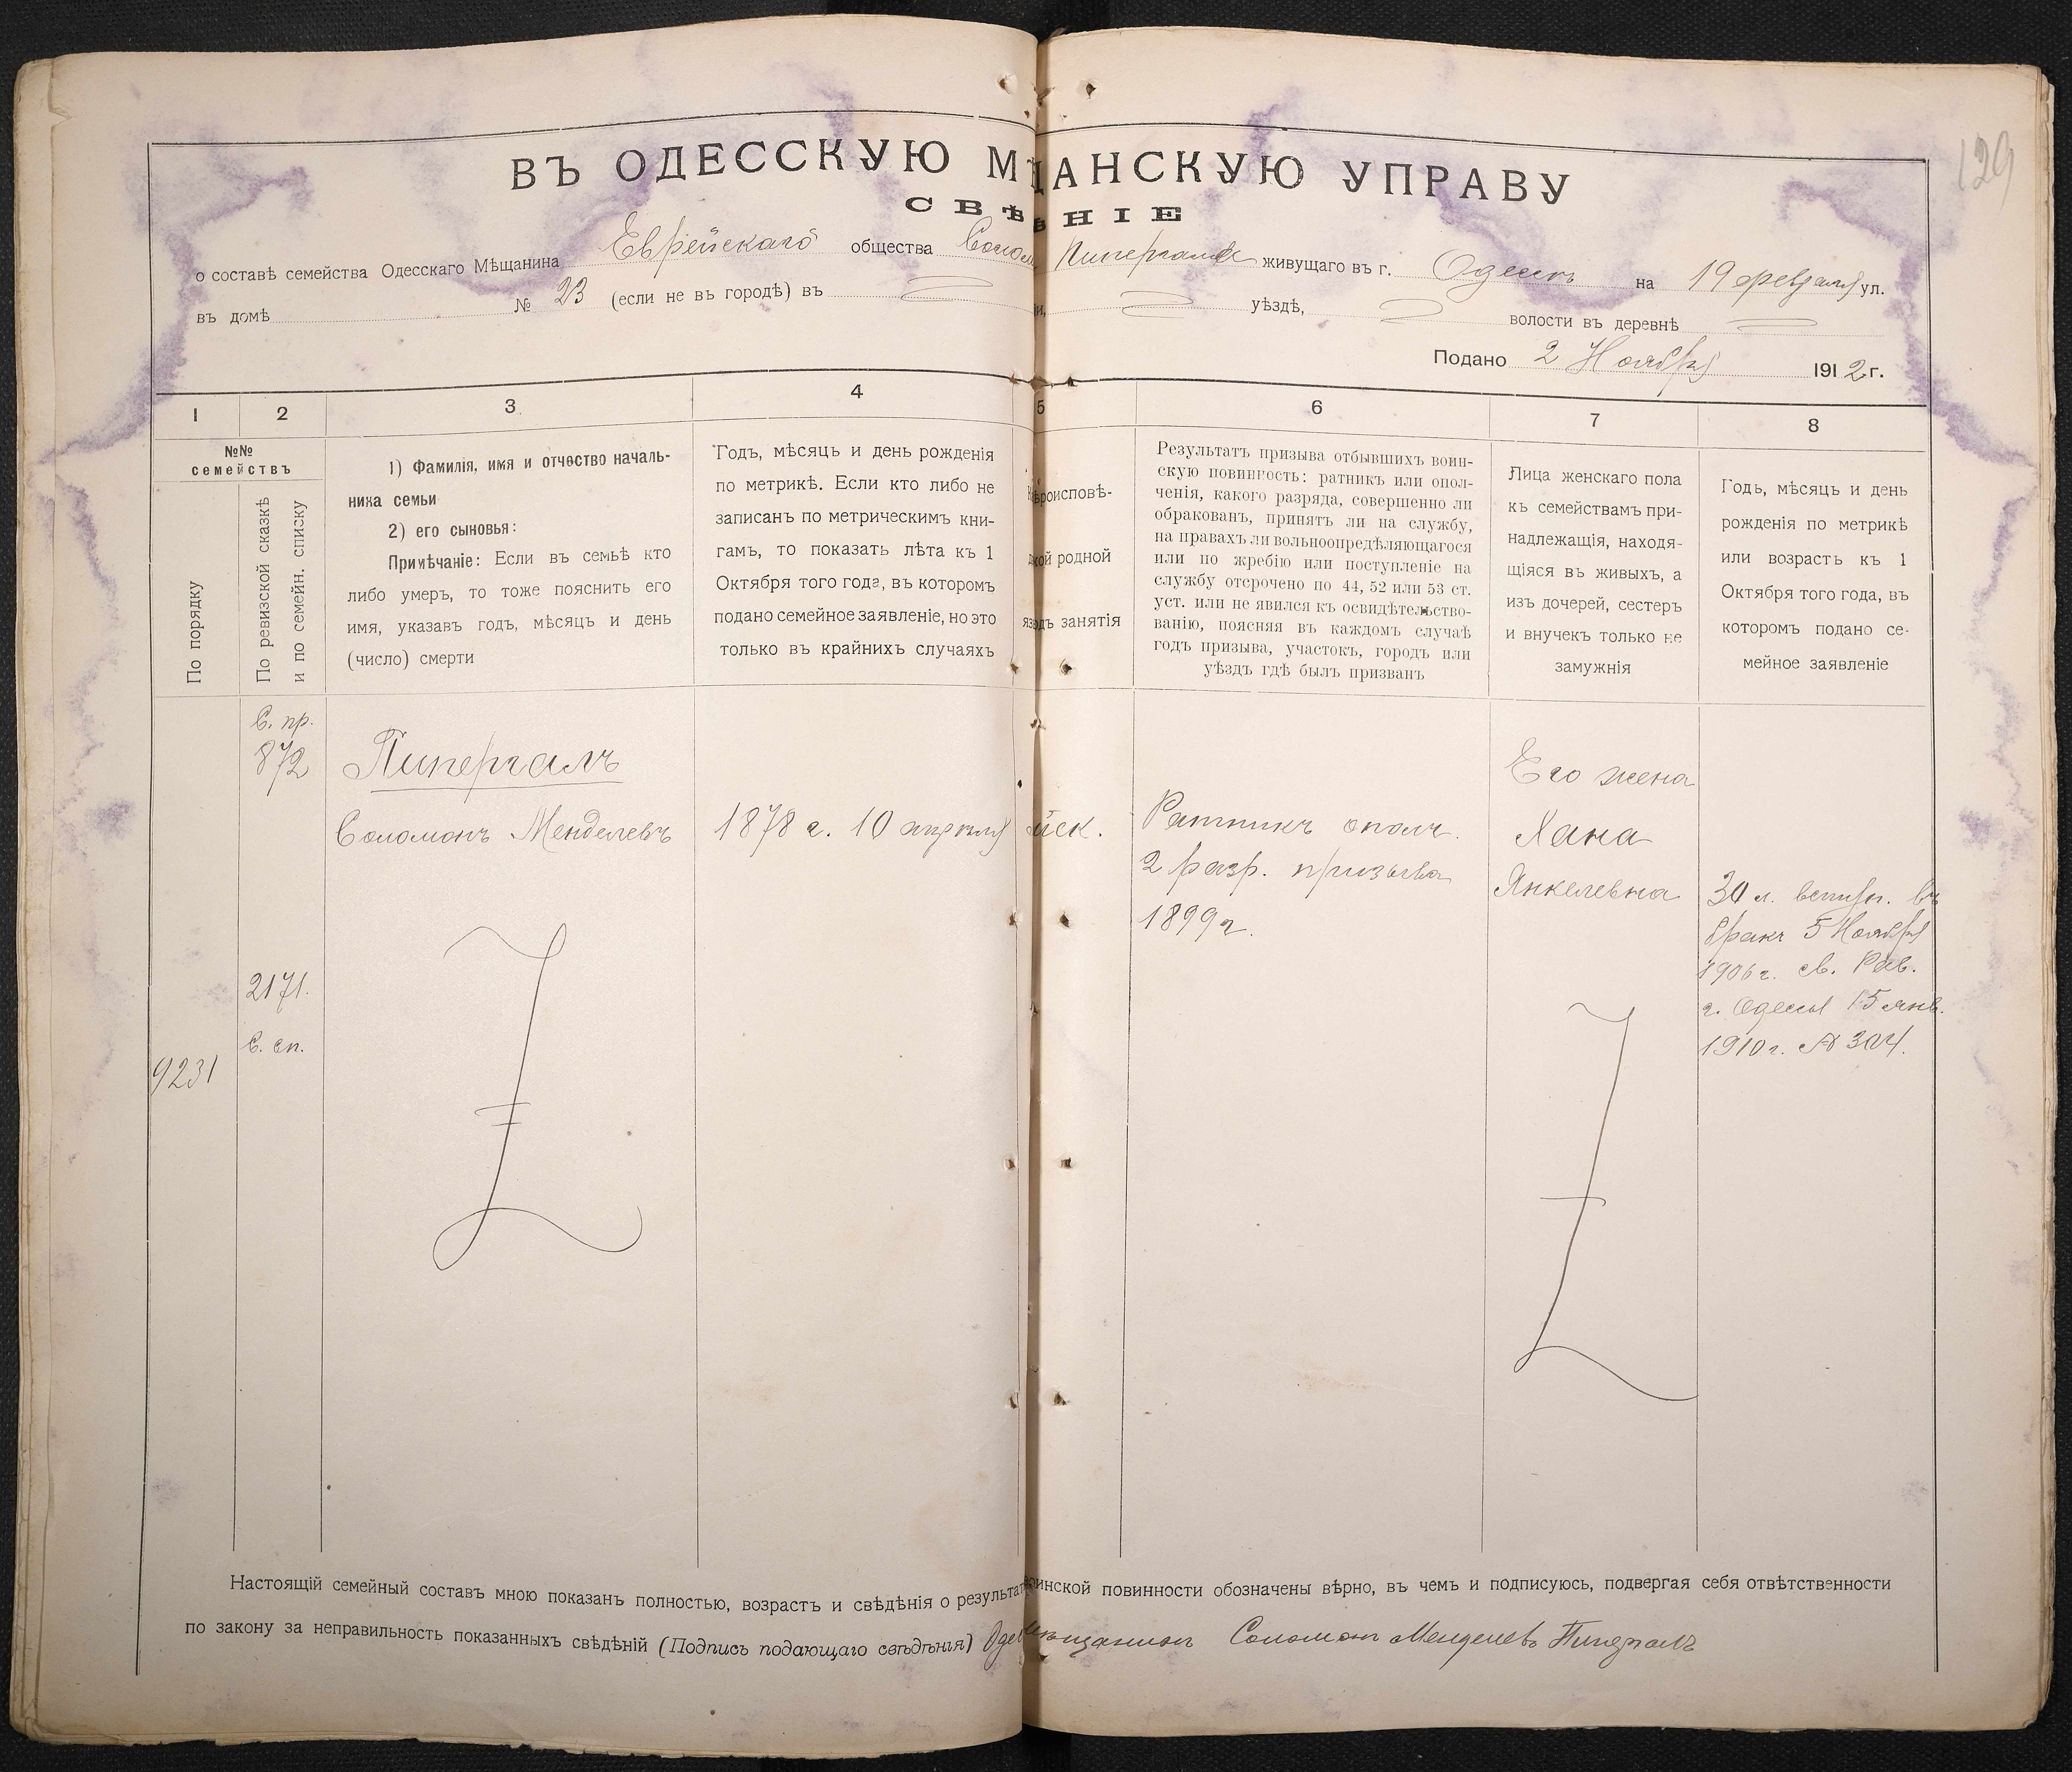 129
ВЪ ОДЕССКУЮ МѢЩАНСКУЮ УПРАВУ
СВѢ НІЕ
о составѣ семейства Одесскаго Мѣщанина Еврейскаго общества Солом Пипергаля живущаго въ г. Одессѣ на 19 февраля ул.
въ домѣ № 23 (если не въ городѣ) въ и, уѣздѣ, волости въ деревнѣ
Подано 2 Ноября 1912 г.
1 2 3 4 5 6 7 8
№№ семействъ
По порядку
По ревизской сказкѣ
и по семейн. списку
1) Фамилія, имя и отчество началь-
ника семьи
2) его сыновья:
Примѣчаніе: Если въ семьѣ кто
либо умеръ, то тоже пояснить его
имя, указавъ годъ, мѣсяцъ и день
(число) смерти
Годъ, мѣсяцъ и день рожденія
по метрикѣ. Если кто либо не
записанъ по метрическимъ кни-
гамъ, то показать лѣта къ 1
Октября того года, въ которомъ
подано семейное заявленіе, но это
только въ крайнихъ случаяхъ
ѣроисповѣ-
кой родной
яз дъ занятія
Результатъ призыва отбывшихъ воин-
скую повинность: ратникъ или опол-
ченія, какого разряда, совершенно ли
обракованъ, принятъ ли на службу,
на правахъ ли вольноопредѣляющагося
или по жребію или поступленіе на
службу отсрочено по 44, 52 или 53 ст.
уст. или не явился къ освидѣтельство-
ванію, поясняя въ каждомъ случаѣ
годъ призыва, участокъ, городъ или
уѣздъ гдѣ былъ призванъ
Лица женскаго пола
къ семействамъ при-
надлежащія, находя-
щіяся въ живыхъ, а
изъ дочерей, сестеръ
и внучекъ только не
замужнія
Годъ, мѣсяцъ и день
рожденія по метрикѣ
или возрастъ къ 1
Октября того года, въ
которомъ подано се-
мейное заявленіе
9231
С. пр.
872
2171.
С. сп.
Пипергалъ
Соломонъ Менделевъ
1878 г. 10 апрѣля
йск.
Ратникъ ополч.
2 разр. призыва
1899 г.
Его жена
Хана
Янкелевна
30 л. вступ. въ
бракъ 5 Ноября
1906 г. св. Рав.
г. Одессы 15 янв.
1910 г. № 304.
Настоящій семейный составъ мною показанъ полностью, возрастъ и свѣдѣнія о результат воинской повинности обозначены вѣрно, въ чемъ и подписуюсь, подвергая себя отвѣтственности
по закону за неправильность показанныхъ свѣдѣній (Подпись подающаго свѣдѣнія) Одес мѣщанинъ Соломонъ Менделевъ Пипергалъ